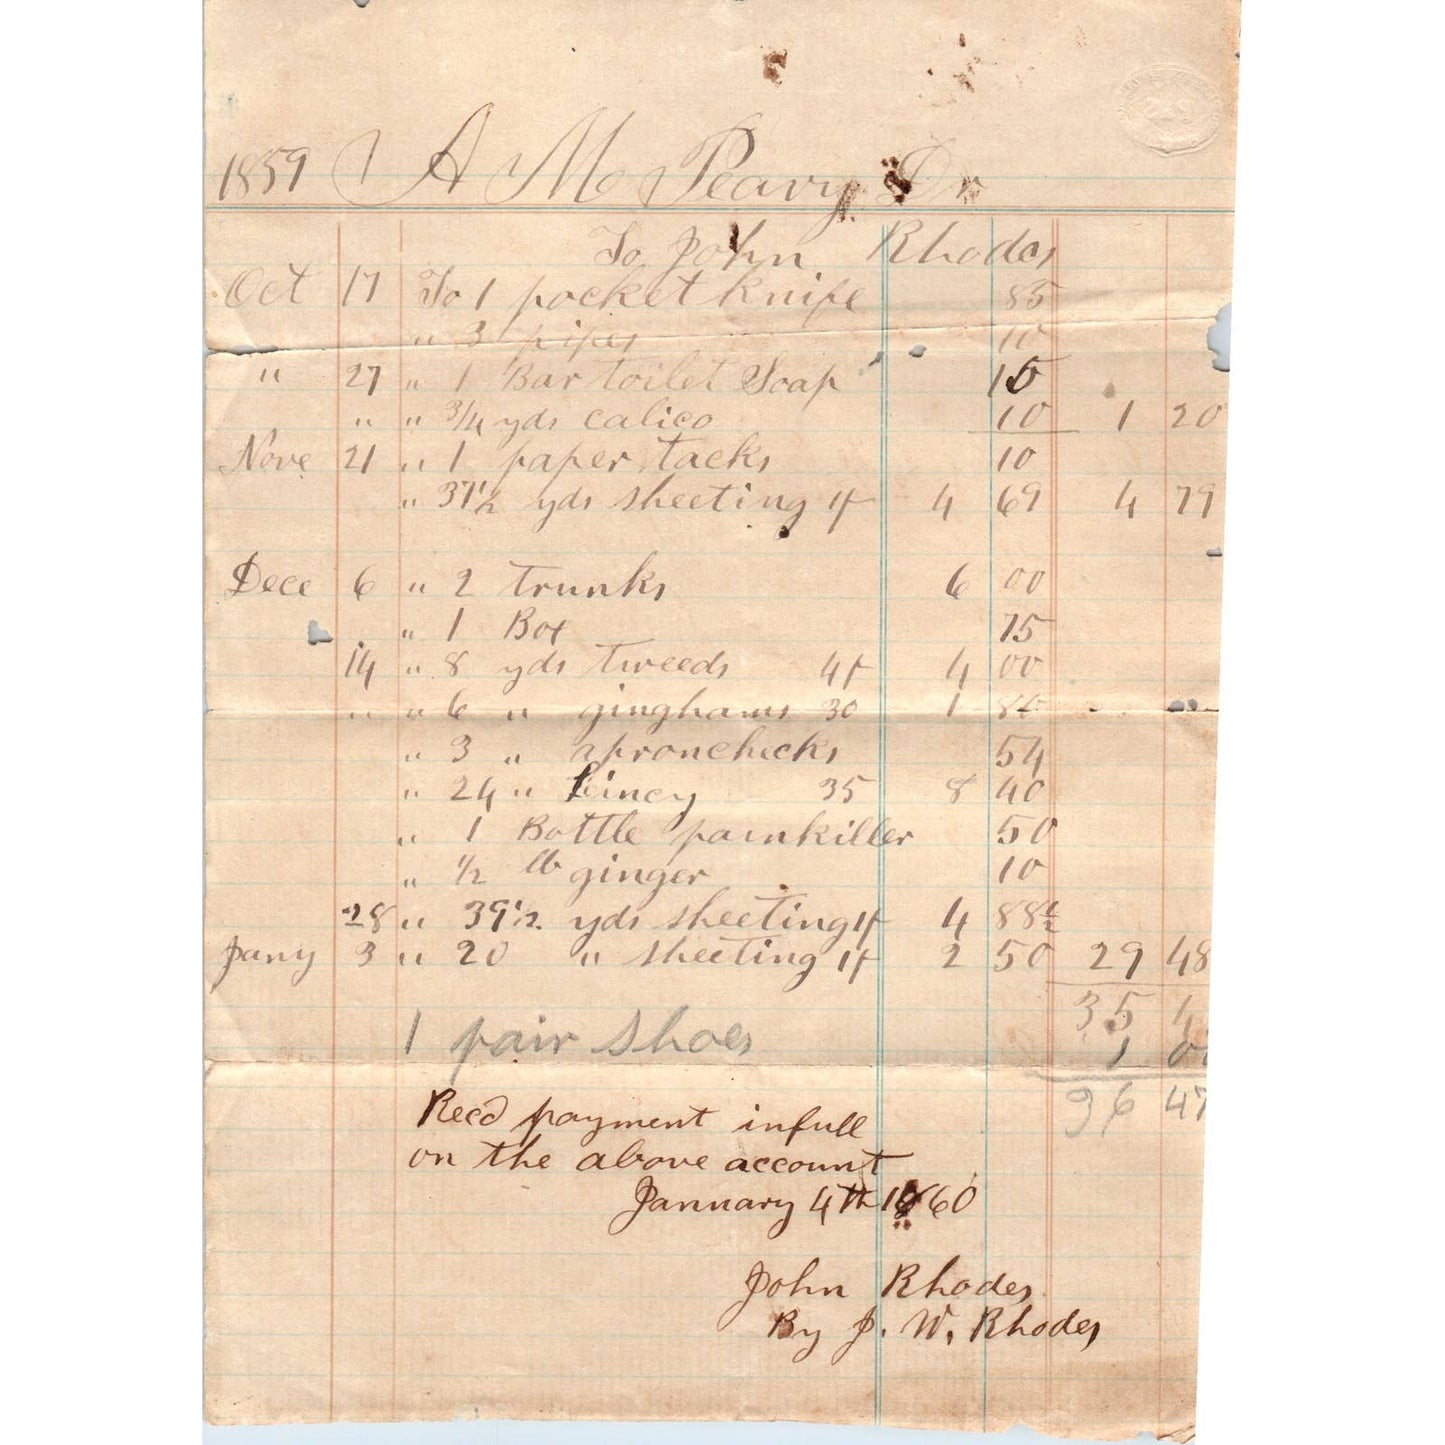 1859 A M Peavy Dr
To John Rhodes
Oct 17 To 1 pocket knife 85
" 3 pipes 10
" 27 " 1 Bar toilet Soap 15
" " 3/4 yds calico 10 1 20
Nove 21 " 1 paper tacks 10
" 37 1/2 yds sheeting 4 69 4 79
Dece 6 " 2 trunks 6 00
" 1 Box 75
14 " 8 yds tweeds 4 00
" " 6 " ginghams 30 1 80
" 3 " apronchecks 54
" 24 " Lincy 35 8 40
" 1 Bottle painkiller 50
" 1/2 lb ginger 10
28 " 39 1/2 yds sheeting 4 88
Jany 3 " 20 " sheeting 2 50 29 48
35 4
1 pair shoes 1 00
36 47
Recd payment infull
on the above account
January 4th 1860
John Rhodes
By J. W. Rhodes